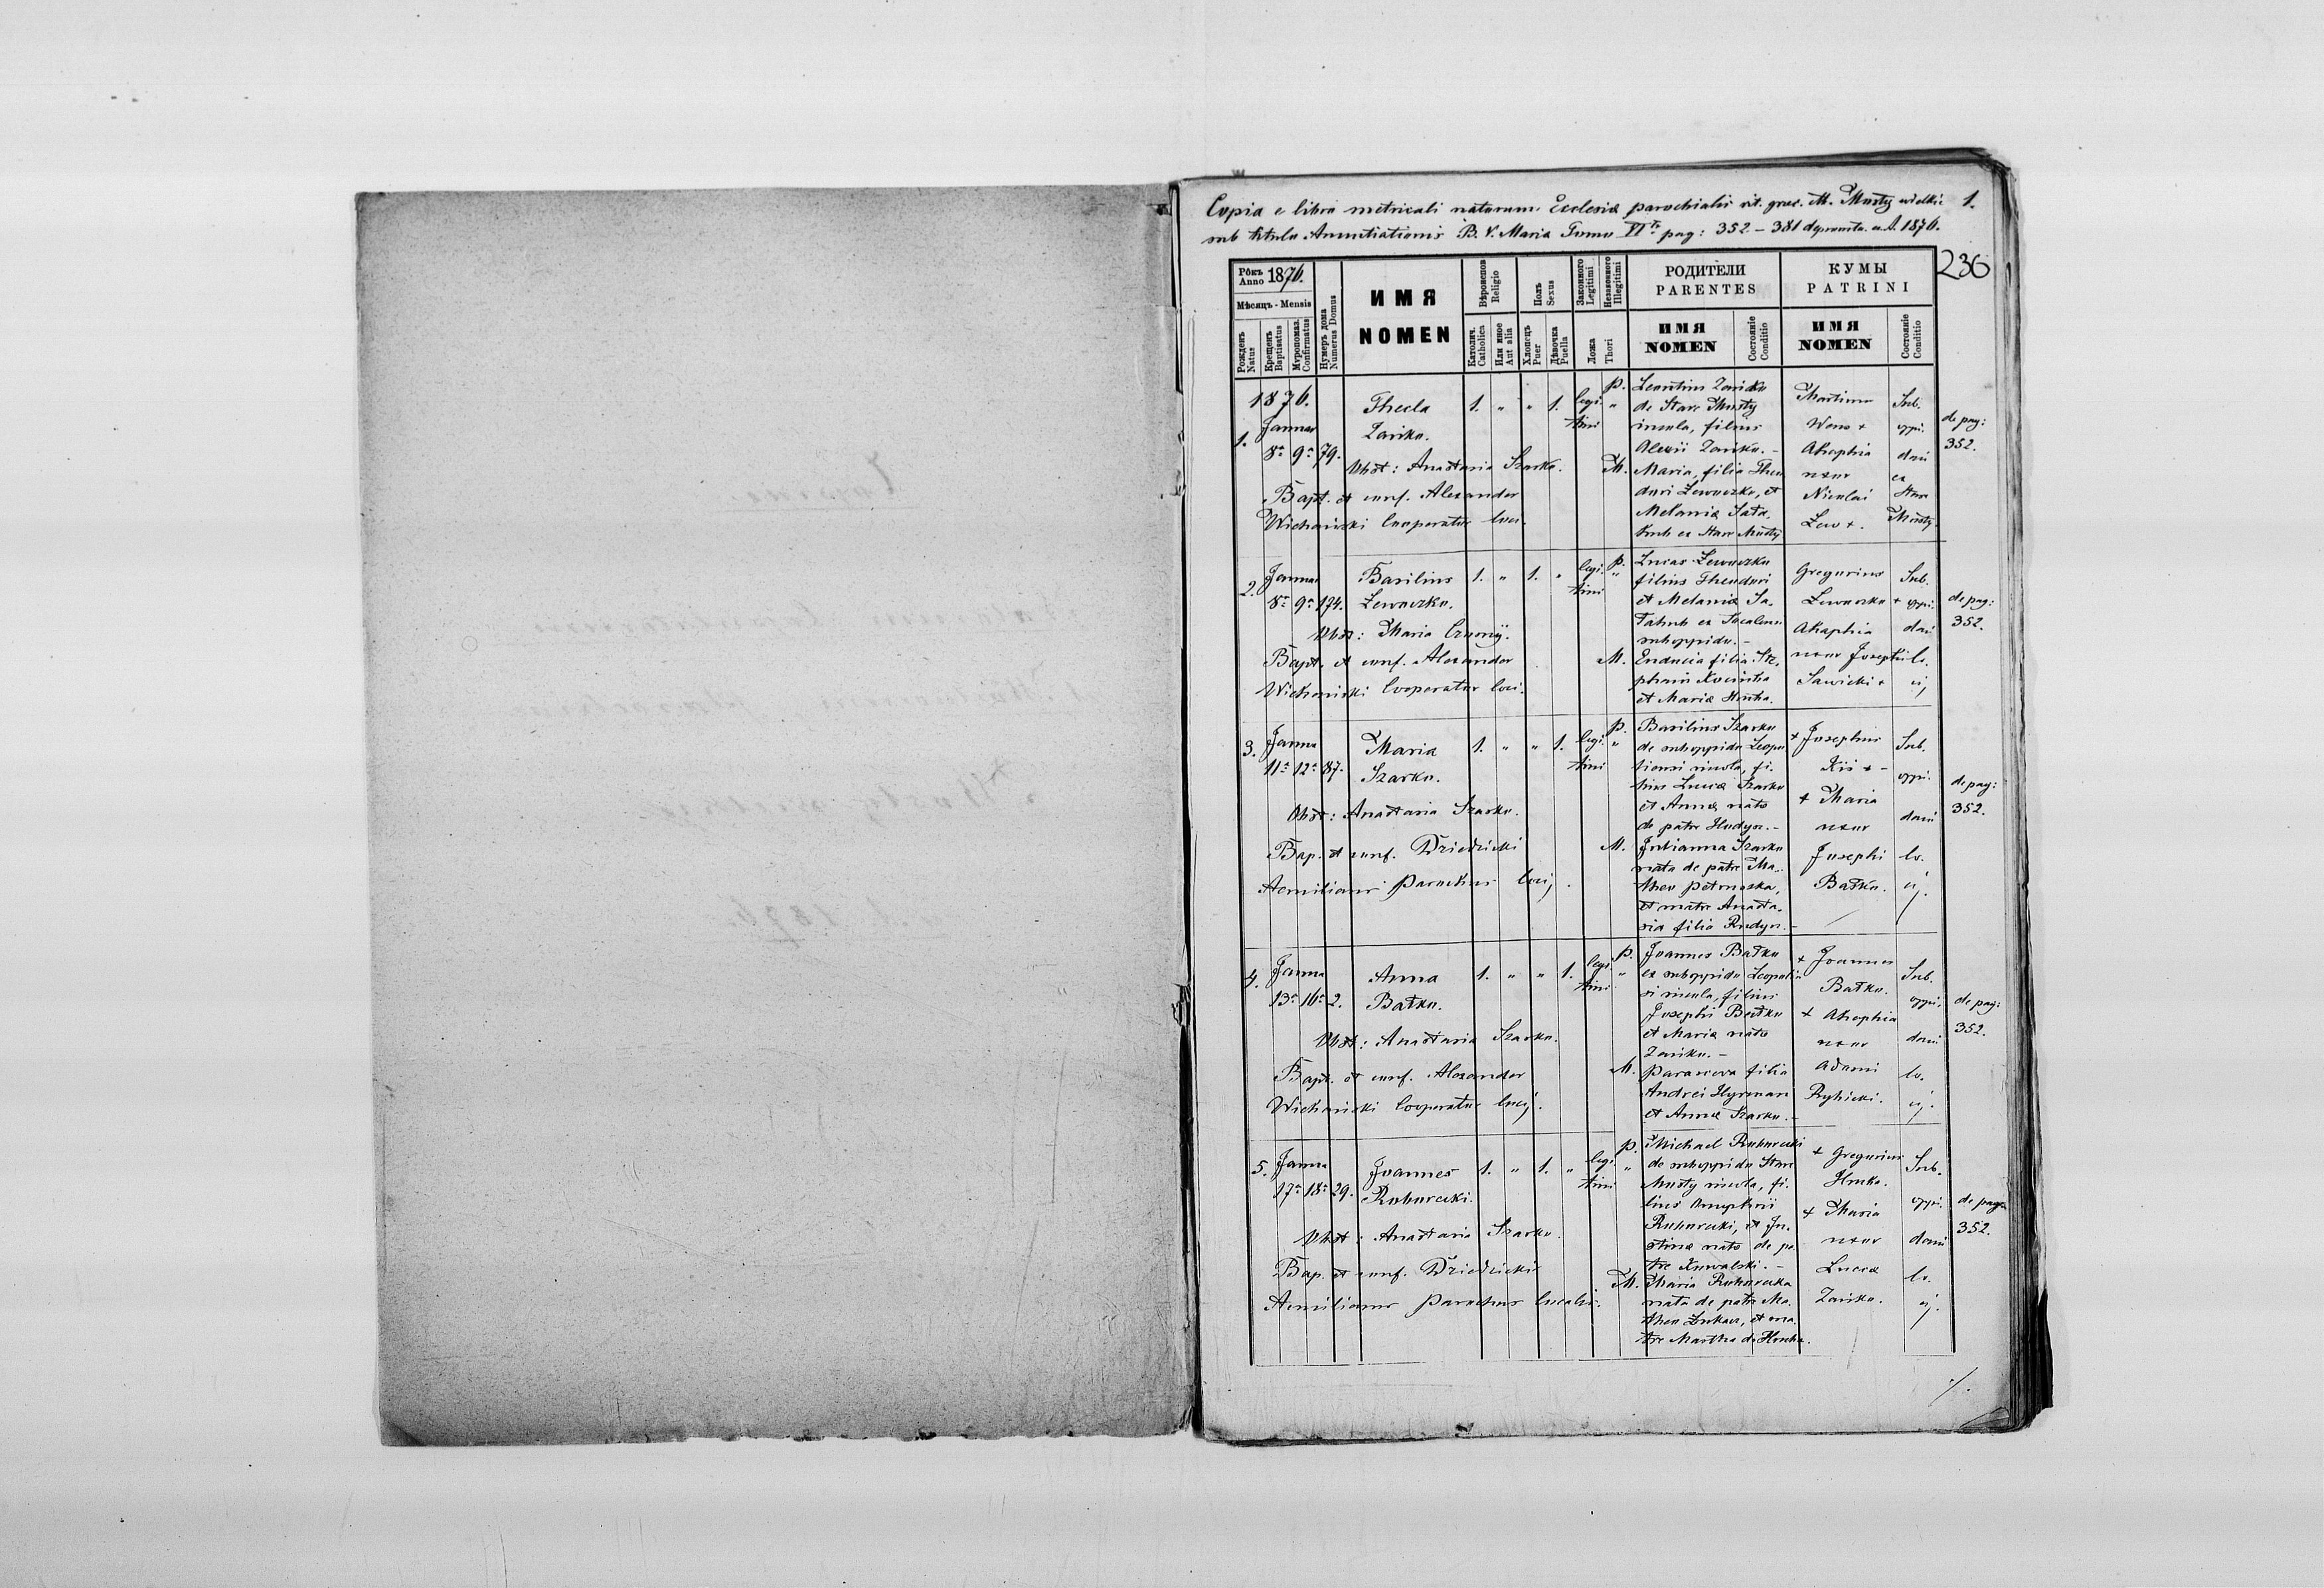 Copia e libro metricali natorum Ecclesiæ parochialis rit. græc. M. Mosty wielkie 1.
sub titulo Anuntiationis B. V. Maria Tomo VI pag: 352 – 381 deprompta. ex A. 1876.
236
Рôкъ Anno 1876.
Мѣсяць - Mensis
Рожденъ Natus
Крещенъ Baptisatus
Мѵропомаз. Confirmatus
Нумеръ дома Numerus Domus
ИМЯ
NOMEN
Вѣроисповѣд Religio
Католич. Catholica
Или иное Aut alia
Полъ Sexus
Хлопець Puer
Дѣвочка Puella
Законного Legitimi
Незаконного Illegitimi
Ложа Thori
РОДИТЕЛИ
PARENTES
ИМЯ
NOMEN
Состоянiе Conditio
КУМЫ
PATRINI
ИМЯ
NOMEN
Состоянiе Conditio
1876.
1. Januar
8a 9a 79.
Thecla
Zariko.
1. " " 1. legi "
timi
Obst: Anastasia Szarko.
Bapt. et conf. Alexander
Wichański Cooperator loci.
P. Leontius Zariko
de Stare Mosty
incola, filius
Alexii Zariko. –
M. Maria, filia Theo
dori Lewoczko, et
Melaniæ Sata
hub ex Stare Mosty
Martinus
Wons +
Ahaphia
uxor
Nicolai
Lew +.
Sub.
oppi.
dani
ex
Stare
Mosty.
de pag:
352.
2. Januar
8a 9a 174.
Basilius
Lewoczko.
1. " 1. " legi. "
timi
Obst: Maria Czornÿ.
Bapt. et conf. Alexander
Wichański Cooperator loci.
P. Lucas Lewoczko
filius Theodori
et Melaniæ Sa.
tahub ex localensi
suboppido. –
M. Eudocia filia Ste.
phani
et Mariæ Hucha.
Gregorius
Lewoczko +
Ahaphia
uxor Josephi
Sawicki +
Sub.
oppi.
dani
lo.
cij
de pag:
352.
3. Janua
11a 12a 87.
Maria
Szarko.
1. " " 1. legi. "
timi
Obst: Anastasia Szarko.
Bap. et conf. Dziedzicki
Aemilianus Parochus locij.
P. Basilius Szarko
de suboppido Leopo
liensi incola, fi.
lius Lucæ Szarko
et Annæ nato
de patre Hudyn. –
M. Julianna Szarko
nata de patre Ma.
theo
et matre Anasta.
sia filia Rudyn. –
+ Josephus
Kii + –
+ Maria
uxor
Josephi
Batko.
Sub.
oppi.
dani
lo.
cij.
de pag:
352.
4. Janua
13a 16a 2.
Anna
Batko.
1. " " 1. legi "
timi
Obst: Anastasia Szarko.
Bapt. et conf. Alexander
Wichański Cooperator locij.
P. Joannes Batko
ex suboppido Leopolien
si incola, filius
Josephi Batko
et Mariæ nato
Zariko. –
M. Parasceva filia
Andrei Hyrman
et Annæ Szarko. –
+ Joannes
Batko.
+ Ahaphia
uxor
Adami
Rybicki.
Sub.
oppi.
dani
lo.
cij.
de pag:
352.
5. Janua
17a 18a 29.
Joannes
Rohowcki.
1. " 1. " legi "
timi
Obst: Anastasia Szarko.
Bap. et conf. Dziedzicki
Aemilianus Parochus localis.
P. Michael Rohowcki
de suboppido Stare
Mosty incola, fi.
lius Onuphrii
Rohowcki, et Ju.
stinæ nato de pa.
tre Kowalski. –
M. Maria Rohowcka
nata de patre Ma.
theo Lukacz, et ma.
tre Martha de Hucha.
+ Gregorius
Hucka.
+ Maria
uxor
Lucæ
Zariko.
Sub.
oppi.
dani
lo.
cij.
de pag:
352.
./.